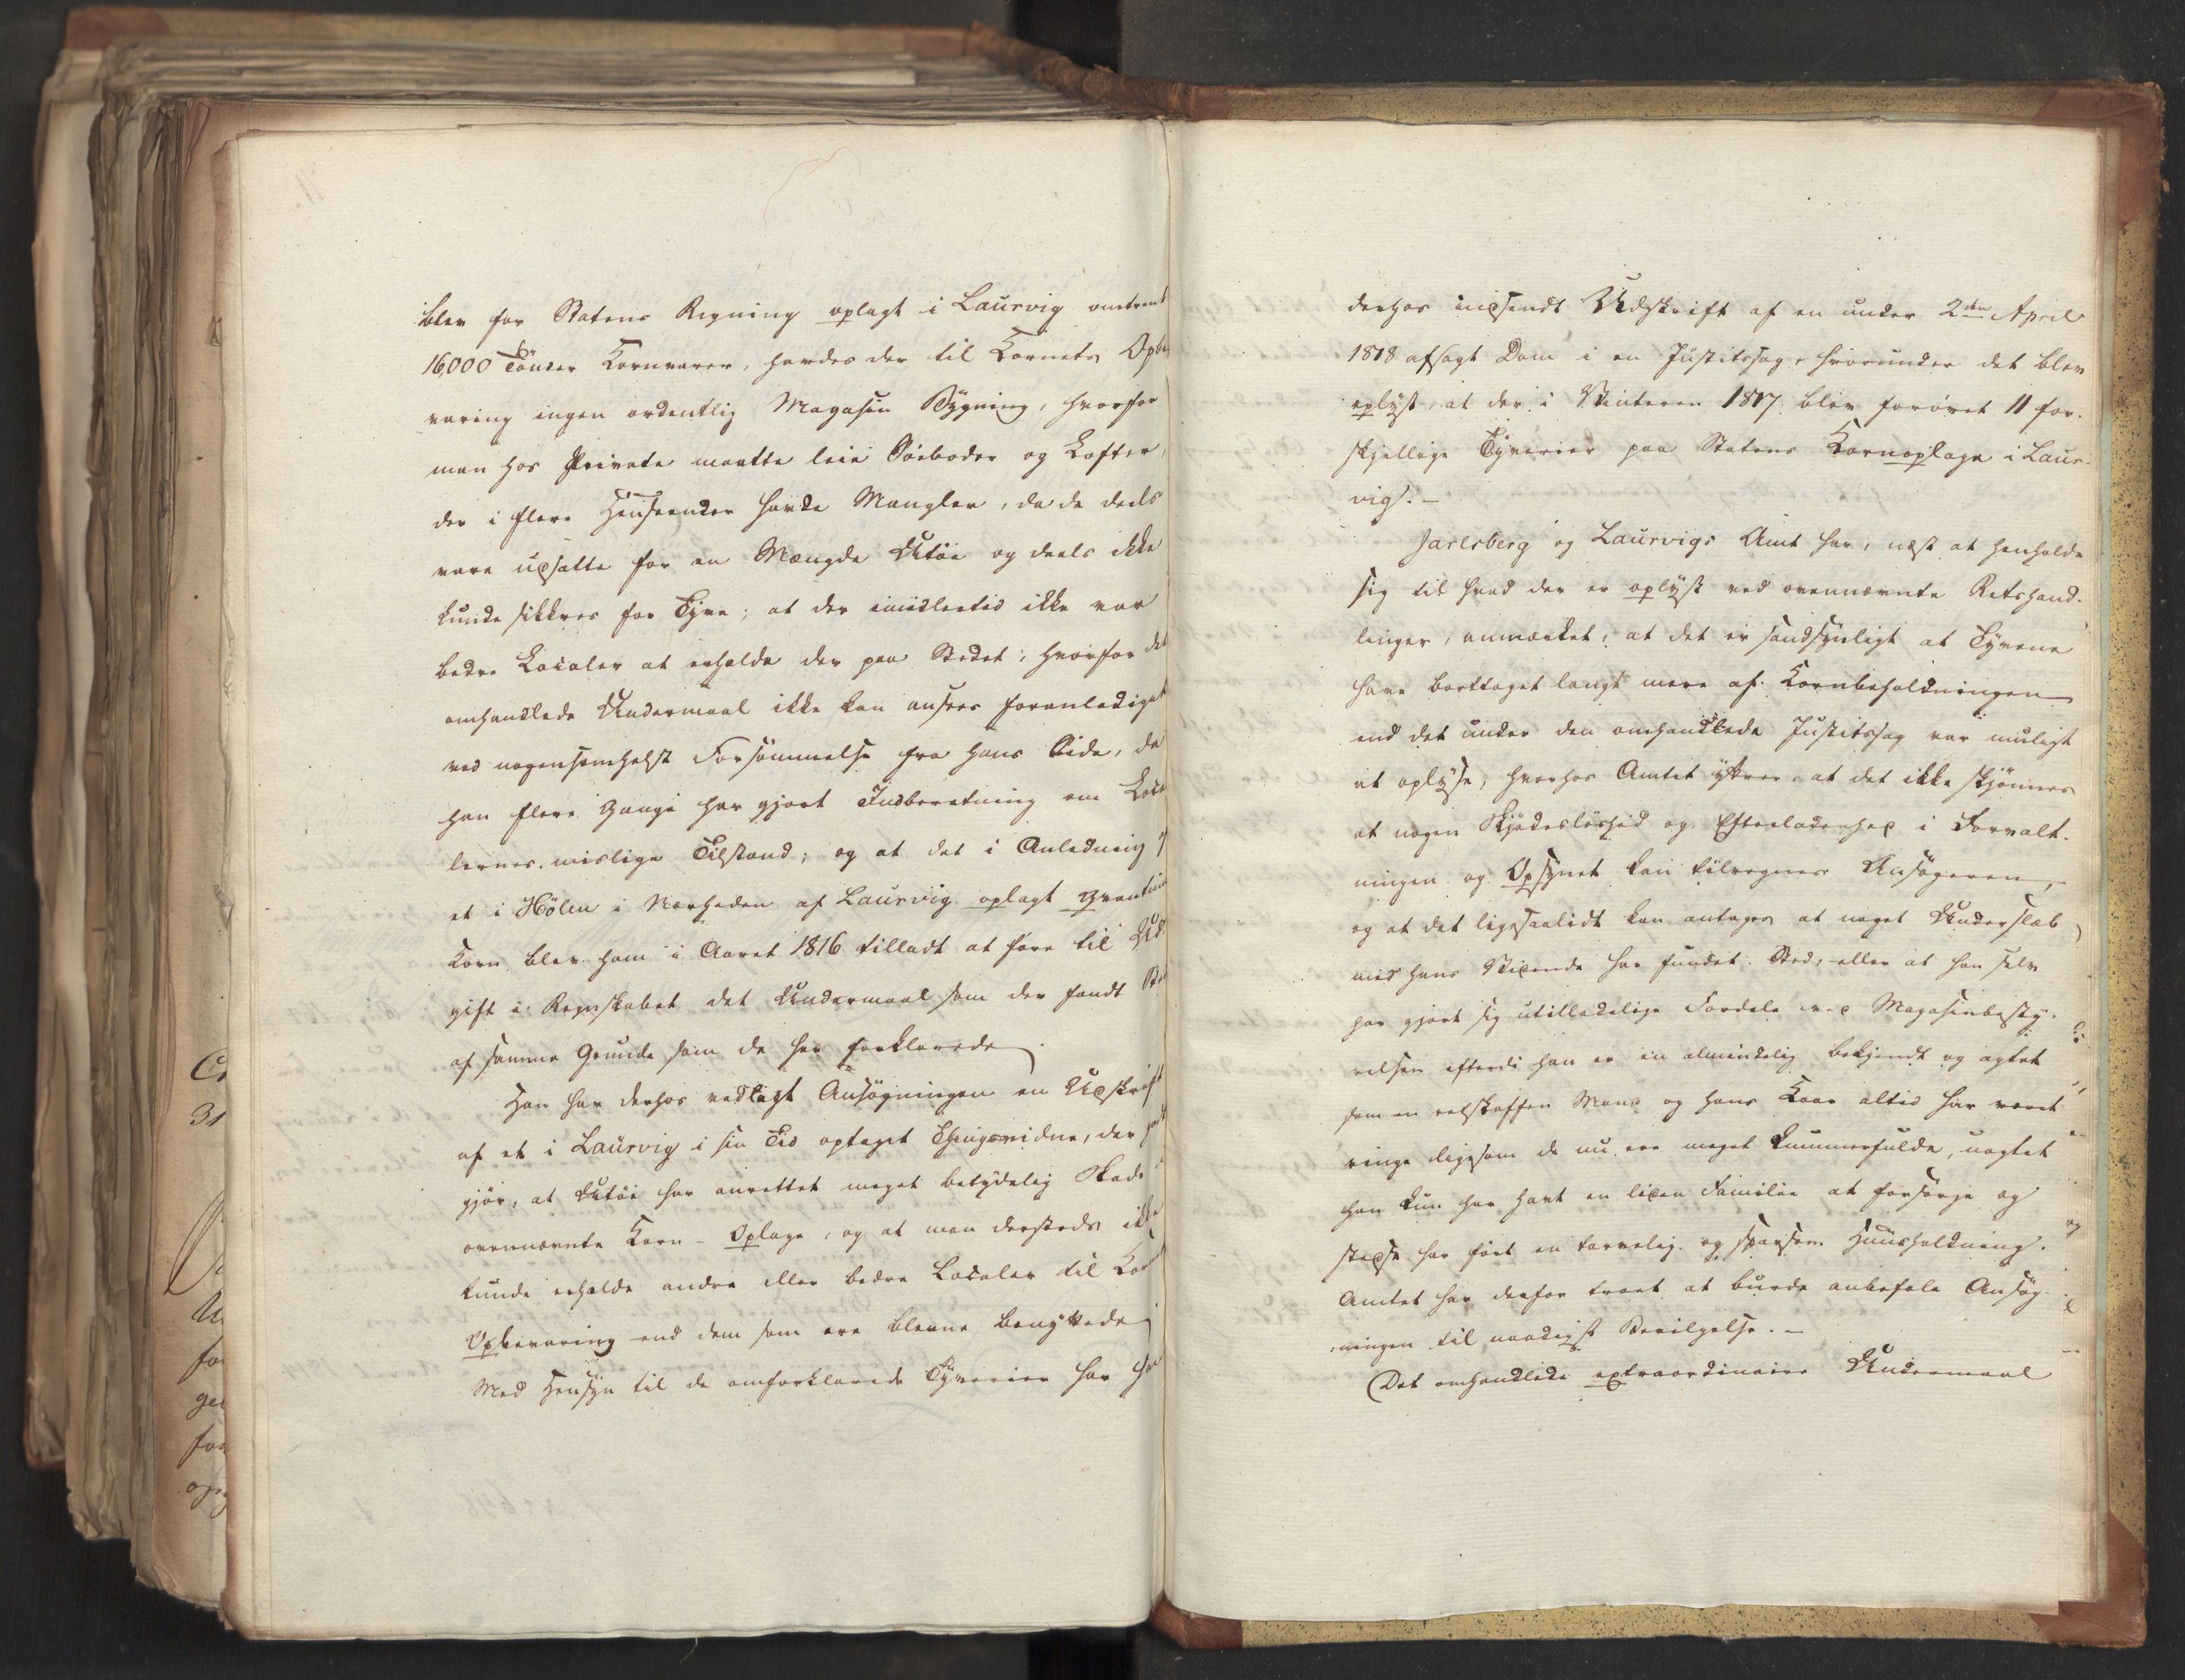 blev for Statens Regning oplagt i Laurvig omtrent
16,000 Tönder Kornvarer, havdes der til Kornets Opbe
varing ingen ordentlig Magasin Bygning, hvorfor
man hos Private maatte leie Söeboder og Lofter,
der i flere Henseender havde Mangler, da de deels
vare udsatte for en Mængde Utöie og deels ikke
kunde sikkres for Tyve; at der imidlertid ikke var
bedre Localer at erholde der paa Stedet; hvorfor det
omhandlede Undermaal ikke kan ansees foranlediget
ved nogensomhelst Forsömmelse fra hans Side, da
han flere Gange har gjort Indberetning om Loca
lernes mislige Tilstand; og at det i Anledning af
et i Hölen i Nærheden af Laurvig oplagt Qvantum
Korn blev ham i Aaret 1816 tilladt at före til Ud
gift i Regnskabet det Undermaal som der fandt Sted
af samme Grunde som de her forklarede.
Han har derhos vedlagt Ansögningen en Udskrift
af et i Laurvig i sin Tid optaget Thingsvidne, der godt
gjör, at Utöie har anrettet meget betydelig Skade
ovennævnte Korn-Oplage, og at man dersteds ikke
kunde erholde andre eller bedre Localer til Kor
Opbevaring end dem som ere blevne benyttede
Med Hensyn til de omforklarede Tyverier har han
derhos indsendt Udskrift af en under 2den April
1818 afsagt Dom i en Justitssag, hvorunder det blev
oplyst, at der i Vinteren 1817 blev forövet 11 for-
skjellige Tyverier paa Statens Kornoplage i Laur-
vig. –
Jarlsberg og Laurvigs Amt har, næst at henholde
sig til hvad der er oplyst ved ovennævnte Retshand-
linger, anmærket: at det er sandsynligt at Tyvene
have borttaget langt mere af Kornbeholdningen
end det under den omhandlede Justitssag var muligt
at oplyse, hvorhos Amtet yttrer, at det ikke skjönnes
at nogen Skjödeslöshed og Efterladenhed i Forvalt-
ningen og Opsynet kan tilregnes Ansögeren,
og at det ligesaalidt kan antages at noget Underslæb
med hans Vidende har fundet Sted, eller at han selv
har gjort sig utilladelige Fordele ved Magasinbesty-
relsen efterdi han er en almindelig bekjendt og agtet
som en retskaffen Mand og hans Kaar altid har været
ringe ligesom de nu ere meget kummerfulde, uagtet
han kun har havt en liden Familie at forsörge og
stedse har fört en tarvelig og sparsom Huusholdning.
Amtet har derfor troet at burde anbefale Ansög-
ningen til naadigst Bevilgelse. –
Det omhandlede extraordinaire Undermaal